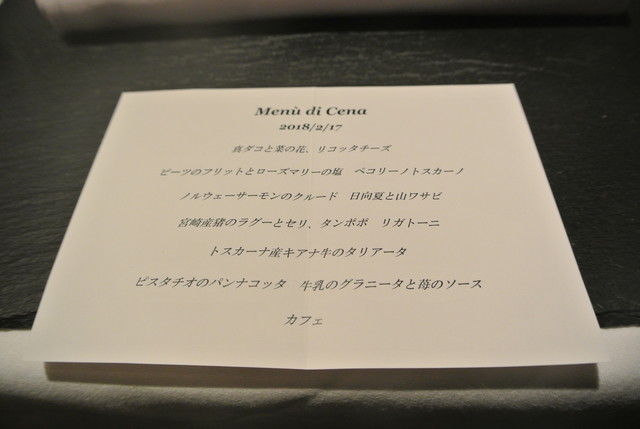 Menù di Cena
2018/2/17
真ダコと菜の花、リコッタチーズ
ビーツのフリットとローズマリーの塩　ペコリーノトスカーノ
ノルウェーサーモンのクルード　日向夏と山ワサビ
宮崎産猪のラグーとセリ、タンポポ　リガトーニ
トスカーナ産キアナ牛のタリアータ
ピスタチオのパンナコッタ　牛乳のグラニータと苺のソース
カフェ